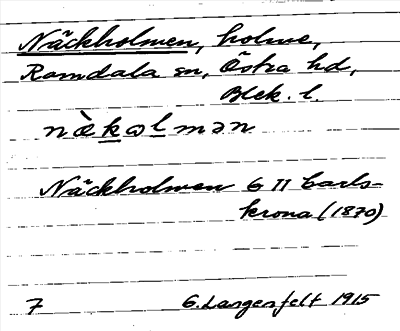 Näckholmen, holme,
Ramdala sn, Östra hd,
Blek. l.
næ̀kəlmən
Näckholmen G II Carls-
krona (1870)
7 G. Langenfelt 1915